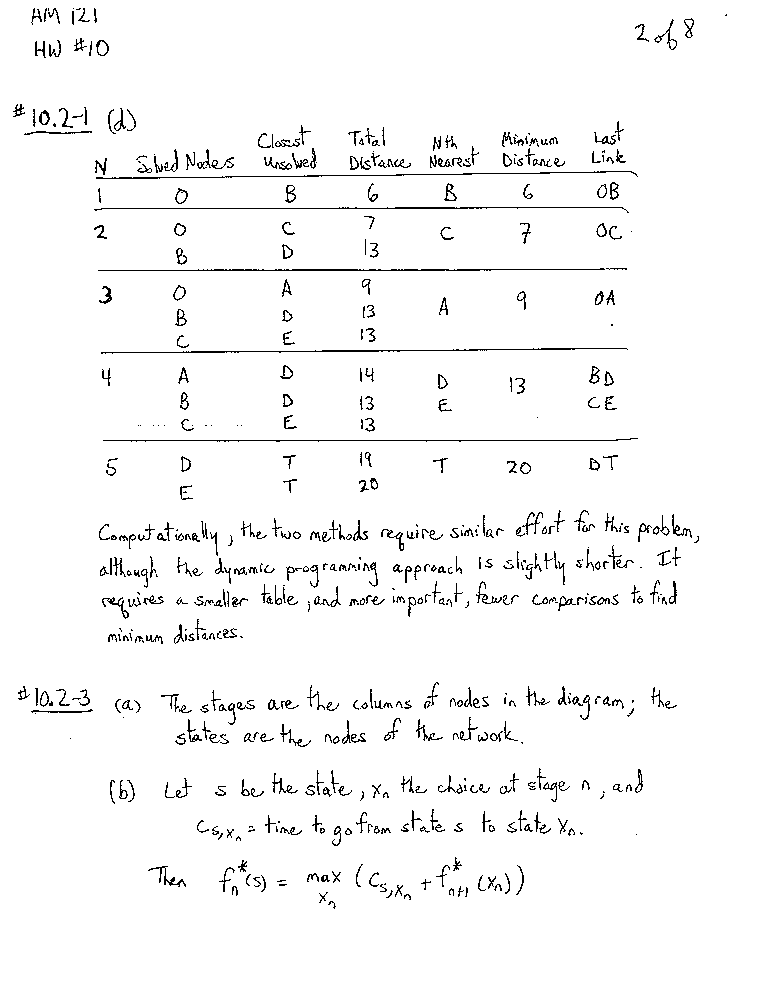 AM 121
HW #10
2 of 8
#10.2-1 (d)
N Solved Nodes Closest Unsolved Total Distance Nth Nearest Minimum Distance Last Link
1 O B 6 B 6 OB
2 O C 7 C 7 OC
B D 13
3 O A 9 A 9 OA
B D 13
C E 13
4 A D 14 D 13 BD
B D 13 E CE
C E 13
5 D T 19 T 20 DT
E T 20
Computationally, the two methods require similar effort for this problem,
although the dynamic programming approach is slightly shorter. It
requires a smaller table, and more important, fewer comparisons to find
minimum distances.
#10.2-3 (a) The stages are the columns of nodes in the diagram; the
states are the nodes of the network.
(b) Let s be the state, xₙ the choice at stage n, and
C_{s,xₙ} = time to go from state s to state xₙ.
Then fₙ*(s) = max_{xₙ} (C_{s,xₙ} + f*_{n+1}(xₙ))